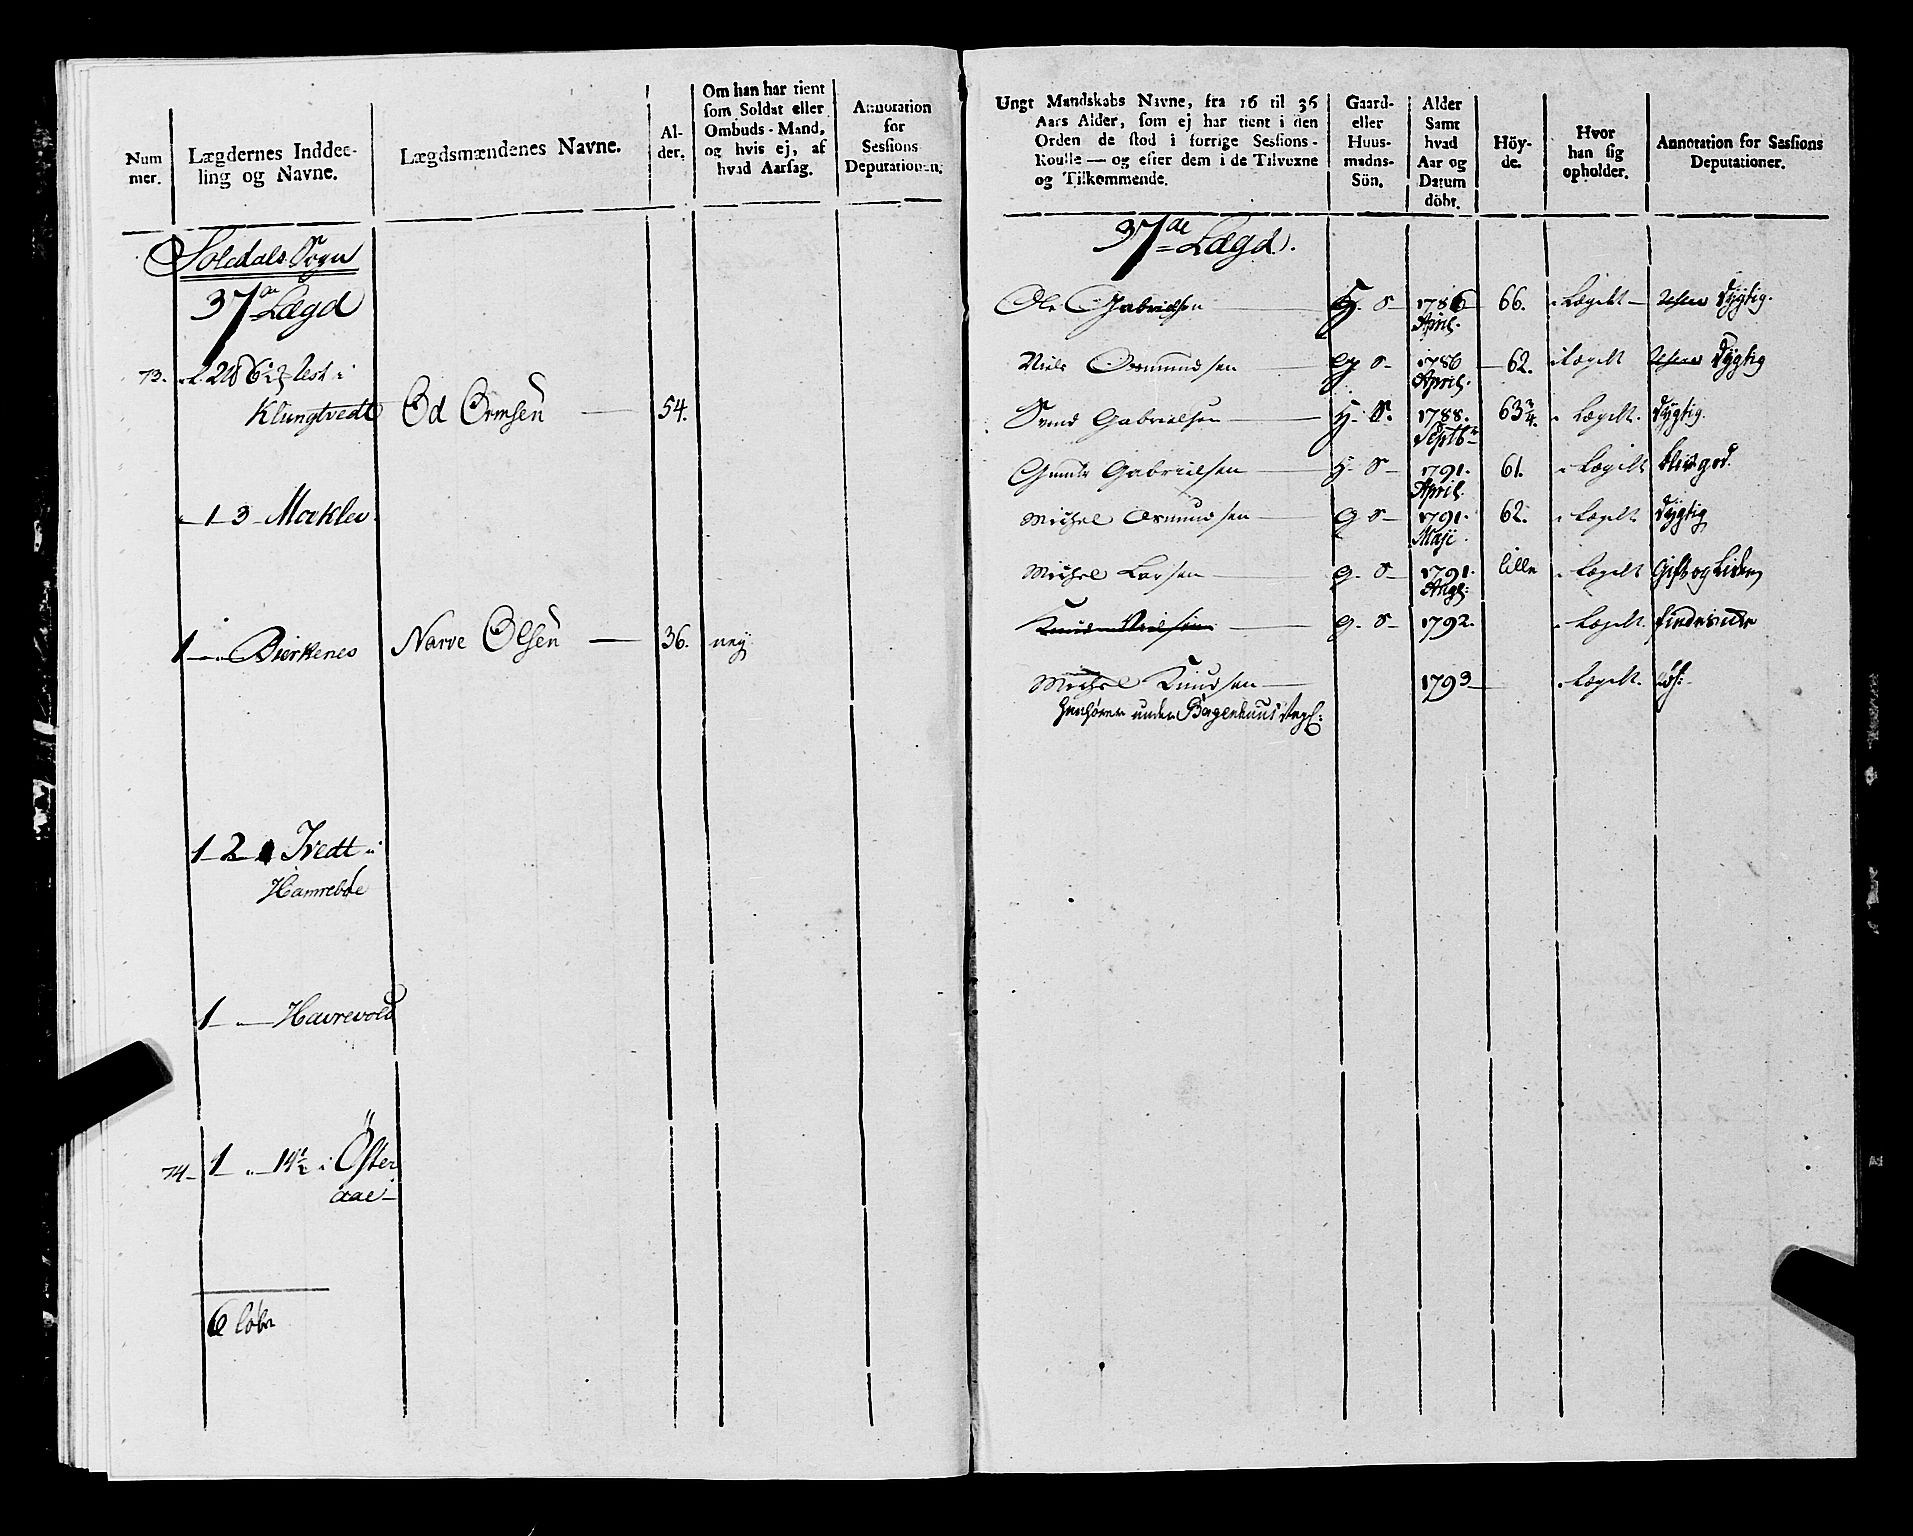 Num
mer.
Lægdernes Inddee-
ling og Navne.
Lægdsmændenes Navne.
Al-
der.
Om han har tient
som Soldat eller
Ombuds-Mand,
og hvis ej, af
hvad Aarsag.
Annotation
for
Sessions
Deputationen.
Soledals Sogn
37de Lægd
73.
Klungtvedt Od Ormsen — 54.
1 3 Morklev
1 — Bierkenes Narve Olsen — 36. ney
1 2 Tvedt i
Hamreböe
1 — Havrevold
74 1 " 14½ i Öster
aae
6 löbr
Ungt Mandskabs Navne, fra 16 til 36
Aars Alder, som ej har tient i den
Orden de stod i forrige Sessions-
Roulle — og efter dem i de Tilvexne
og Tilkommende.
Gaard-
eller
Huus-
mands-
Sön.
Alder
Samt
hvad
Aar og
Datum
döbt.
Höy-
de.
Hvor
han sig
opholder.
Annotation for Sessions
Deputationer.
37de Lægd.
Ole Gabrielsen — H. S 1786 66. i Lægdt — dygtig.
April.
Niels Osmundsen G S 1786 — 62. i Lægdt dygtig
April.
Svend Gabrielsen — H. S. 1788. 63¾. i Lægdt. dygtig.
Septbr
Gabrielsen — H. S 1791. 61. i Lægdt
April.
Michel Osmundsen — G S 1791. 62. i Lægdt dygtig
Maji.
Michel Larsen — G. S 1791. lille i Lægdt Gift og Liden
Aug:
Knud Nielsen G. S 1792. i Lægdt.
Michel Knudsen — 1793 — i Lægdt.
henhörer under Bergenhuus Regt: